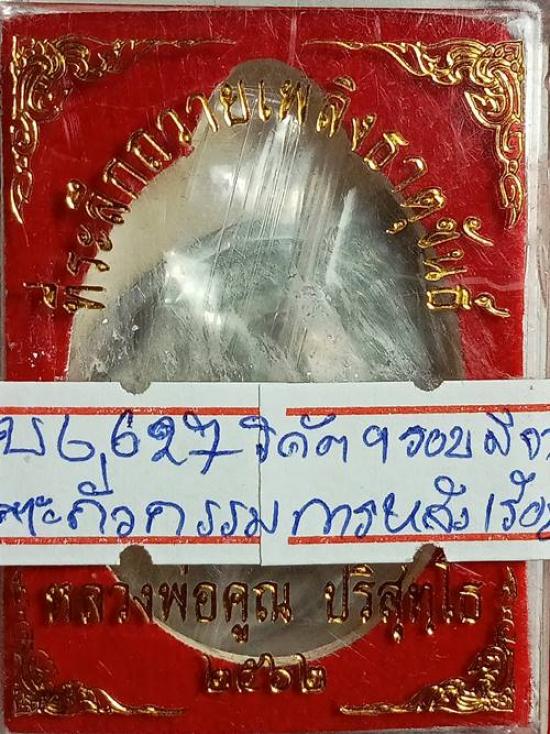 ที่ระลึกถวายเพลิงธาตุขันธ์
6,627 วิดัต 9 รอบ มีจา
ตะกั่วกรรมการหลังเรีย
หลวงพ่อคูณ ปริสุทฺโธ
๒๕๖๒